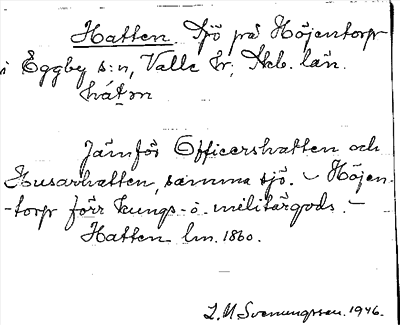 Hatten. Sjö på Höjentorp
i Eggby s:n, Valle hr; Skb. län.
hát̠m
Jämför Officershatten och
Husarhatten, samma sjö. – Höjen-
-torp förr kungs- o. militärgods. –
Hatten lm. 1860.
L. M. Svenungsson. 1946.